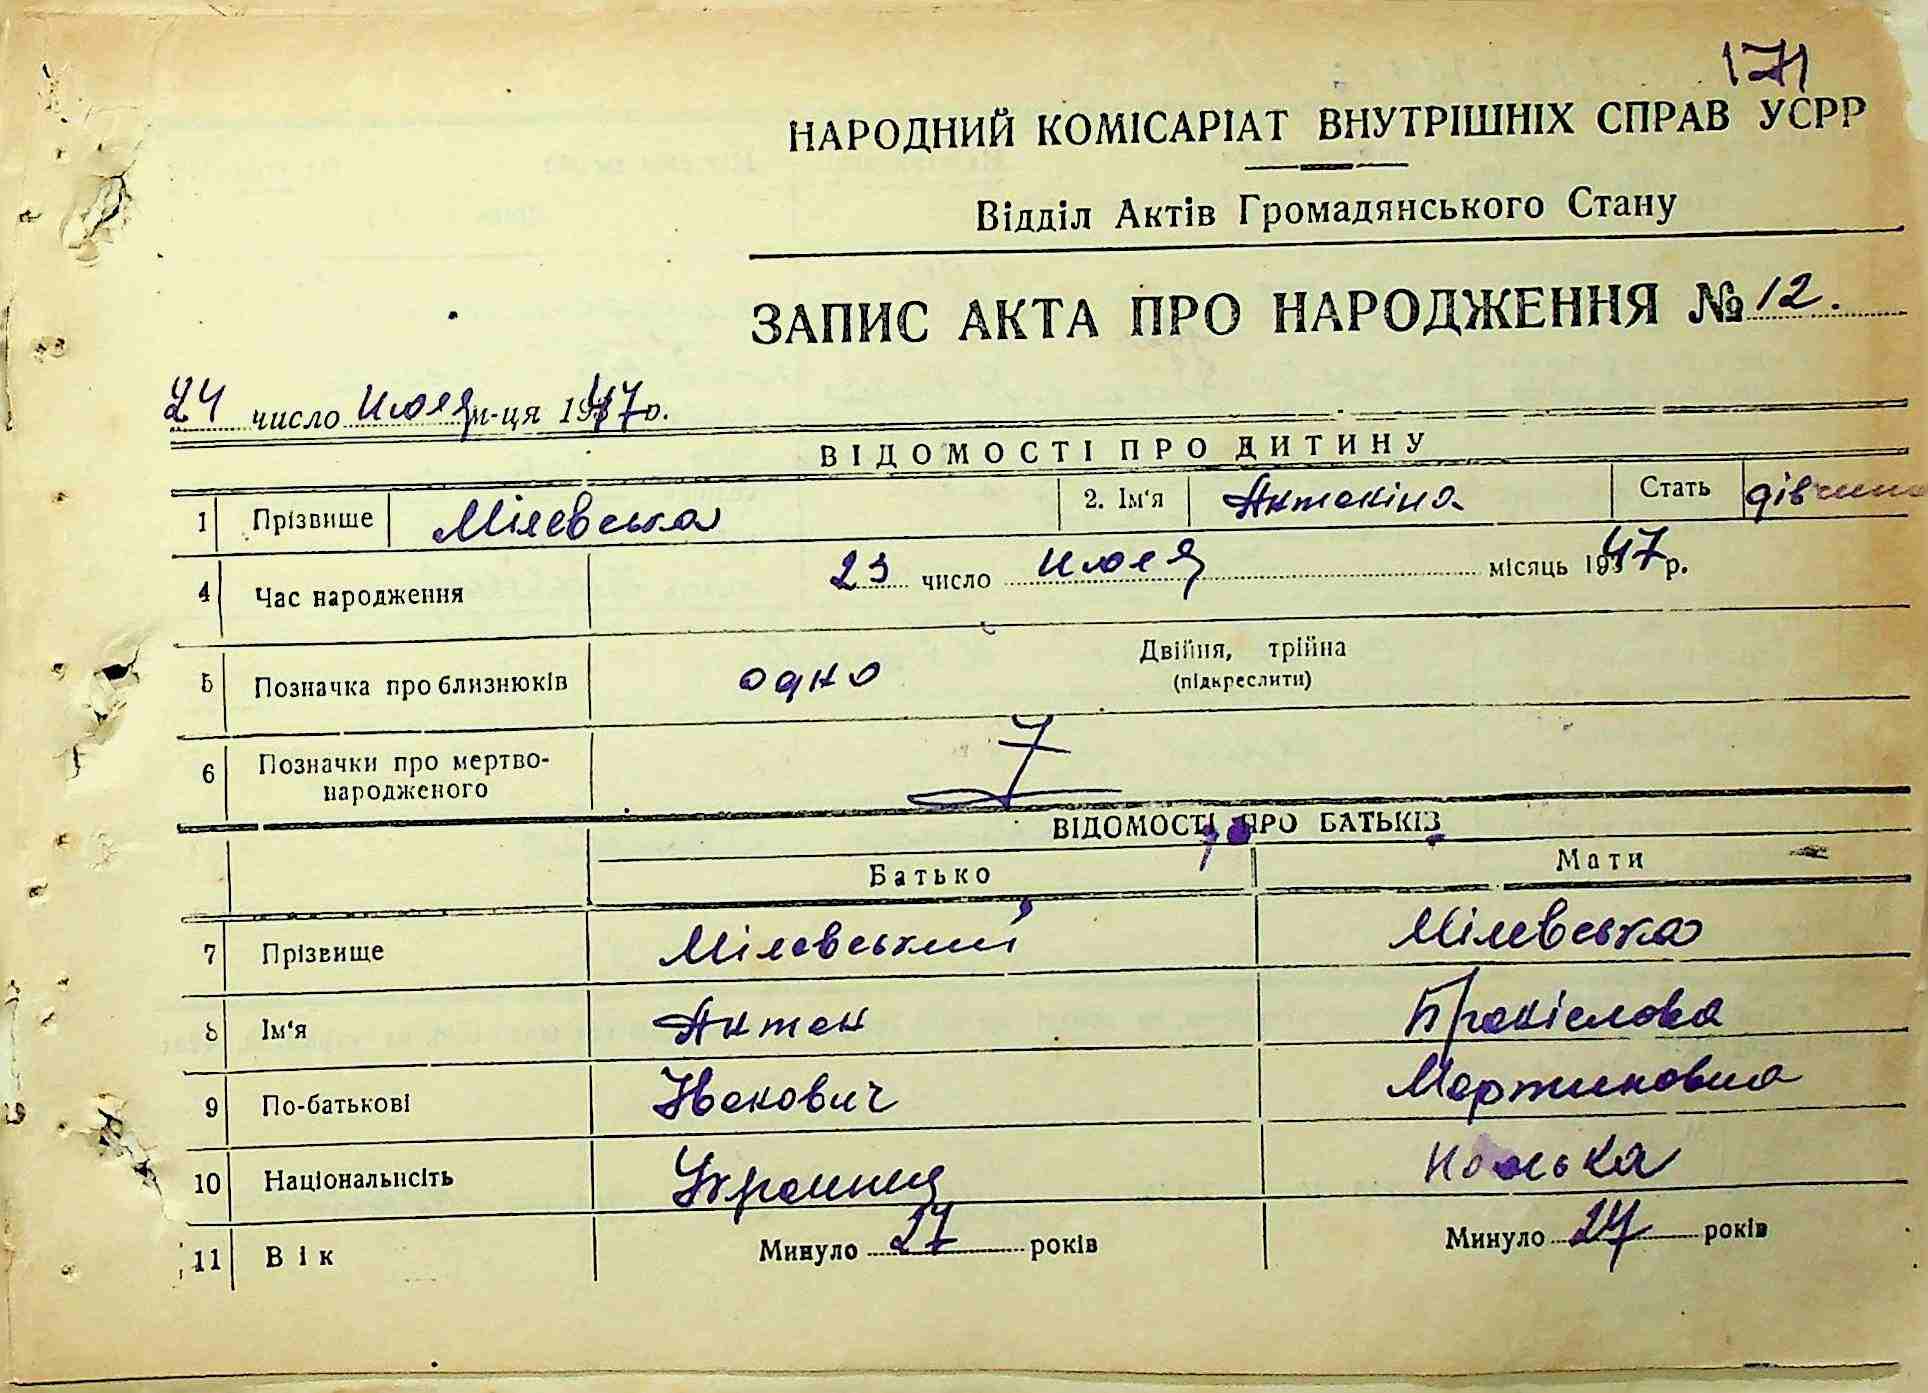 171
НАРОДНИЙ КОМІСАРІАТ ВНУТРІШНІХ СПРАВ УСРР
Відділ Актів Громадянського Стану
ЗАПИС АКТА ПРО НАРОДЖЕННЯ № 12.
24 число июля м-ця 1947 р.
ВІДОМОСТІ ПРО ДИТИНУ
1 Прізвище Мілевська 2. Ім'я Антоніна Стать дівчина
4 Час народження 23 число июля місяць 1947 р.
5 Позначка про близнюків одно Двійня, трійна
(підкреслити)
6 Позначки про мертво-
народженого
ВІДОМОСТІ ПРО БАТЬКІВ
Батько Мати
7 Прізвище Мілевський Мілевська
8 Ім'я Антон Броніслова
9 По-батькові Іванович Мартиновна
10 Національнсіть Украинец Полька
11 Вік Минуло 27 років Минуло 24 років